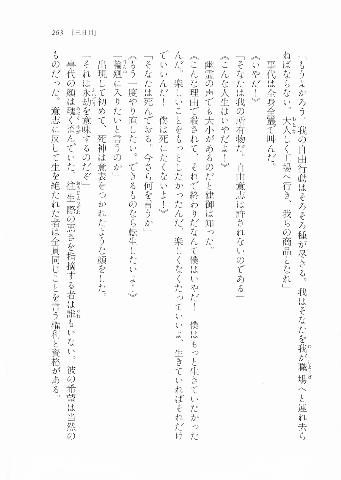 263 [三日目]
「もうよかろう。我の自由行動はそろそろ種が尽きる。我はそなたを我が職場へと連れ去ら
ねばならない。大人しく工場へ行き、我らの商品となれ」
事代は全身全霊で叫んだ。
《いやだ！》
「そなたは我の所有物だ。自由意志は許されないのである」
《こんな人生はいやだよ！》
幽霊の声でも大小があるのだと健師は知った。
《こんな理由で殺されて、それで終わりだなんて僕はいやだ！　僕はもっと生きていたかった
んだ。楽しいことをもっとしたかったんだ。楽しくなくたっていいよ、生きていればそれだけ
でいいんだ！　僕は死にたくない！》
「そなたは死んでおる。今さら何を言うか」
《もう一度やり直したい。できるものなら転生したいよ！》
「輪廻に入りたいと言うのか」
出現して初めて、死神は意表をつかれたような顔をした。
「それは永劫を意味するのだぞ」
事代の顔は醜く歪んでいた。往生際の悪さを指摘する者は誰もいない。彼の希望は当然の
ものだった。意志に反して生を絶たれた者は全員同じことを言う権利と資格がある。